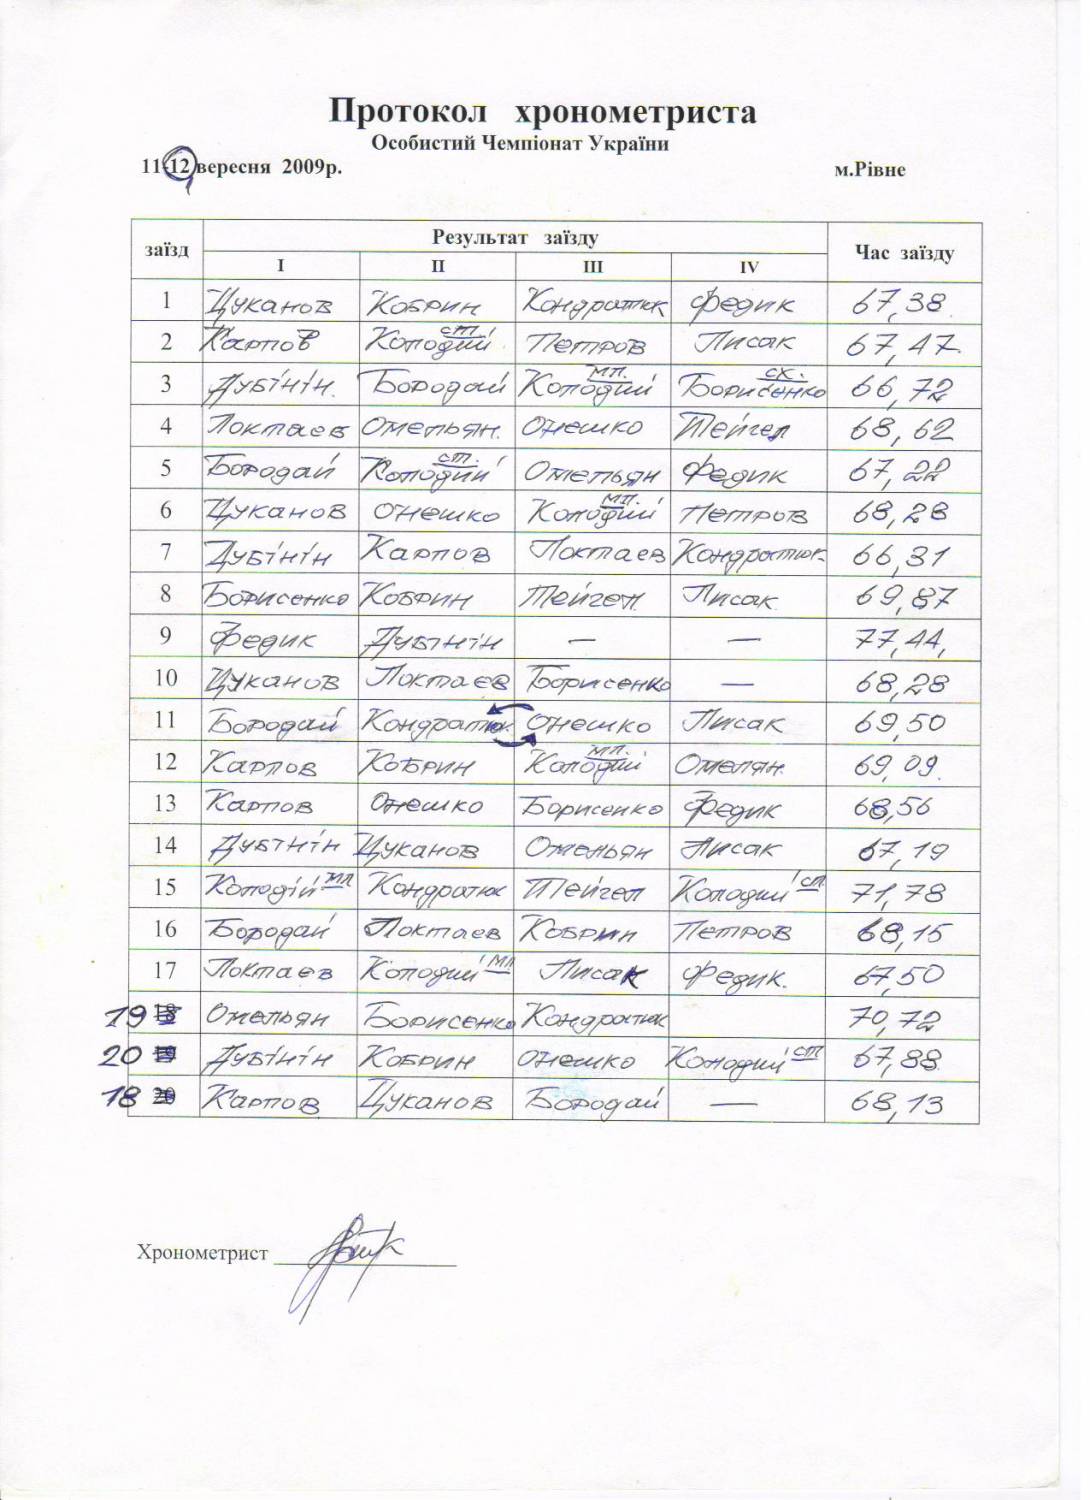 Протокол хронометриста
Особистий Чемпіонат України
11-12 вересня 2009р. м.Рівне
заїзд Результат заїзду Час заїзду
I II III IV
1 Цуканов Кобрин Кондратюк Федик 67,38
2 Карпов Колодий ст. Петров Лисак 67,47
3 Дубінін Бородай Колодий мл. Борисенко сх. 66,72
4 Локтаев Омельян Онешко Тейгел 68,62
5 Бородай Колодий ст. Омельян Федик 67,22
6 Цуканов Онешко Колодий мл. Петров 68,28
7 Дубінін Карпов Локтаев Кондратюк 66,31
8 Борисенко Кобрин Тейгел Лисак 69,87
9 Федик Дубінін — — 77,44,
10 Цуканов Локтаєв Борисенко — 68,28
11 Бородай Кондратюк Онешко Лисак 69,50
12 Карпов Кобрин Колодий мл. Омелян 69,09
13 Карпов Онешко Борисенко Федик 68,56
14 Дубінін Цуканов Омельян Лисак 67,19
15 Колодій мл Кондратюк Тейгел Колодий ст. 71,78
16 Бородай Локтаев Кобрин Петров 68,15
17 Локтаев Колодий мл Лисак Федик. 67,50
19 18 Омельян Борисенко Кондратюк 70,72
20 19 Дубінін Кобрин Онешко Колодий ст 67,88
18 20 Карпов Цуканов Бородай — 68,13
Хронометрист